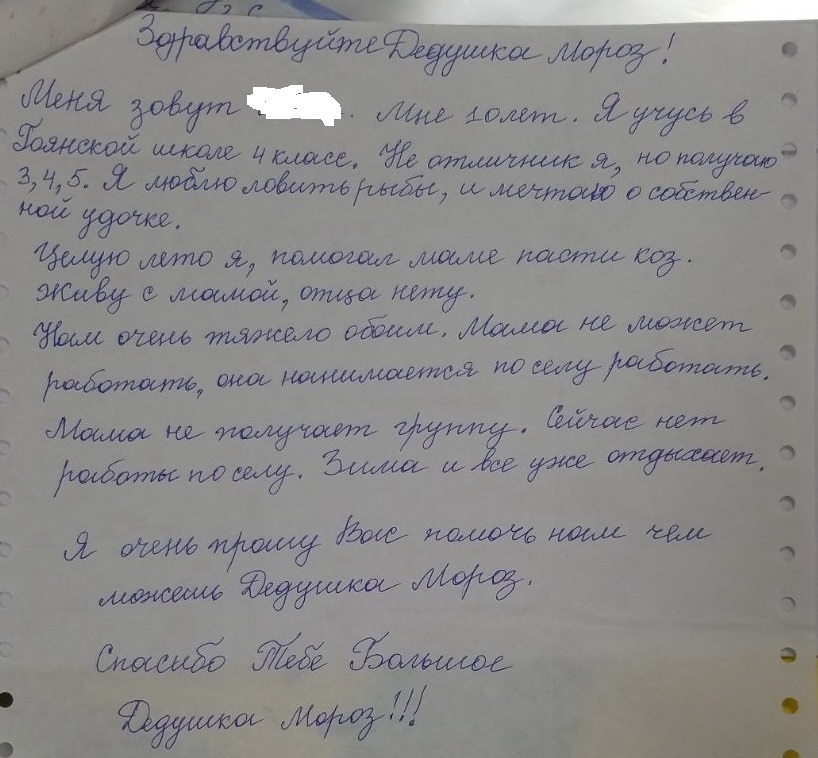 Здравствуйте Дедушка Мороз!
Меня зовут . Мне 10 лет. Я учусь в
Гоянской школе 4 класс. Не отличник я, но получаю
3, 4, 5. Я люблю ловить рыбы, и мечтаю о собствен-
ной удочке.
Целую лето я, помогал маме пасти коз.
Живу с мамой, отца нету.
Нам очень тяжело обоим. Мама не может
работать, она нанимается по селу работать.
Мама не получает группу. Сейчас нет
работы по селу. Зима и все уже отдыхает.
Я очень прошу Вас помочь нам чем
можешь Дедушка Мороз.
Спасибо Тебе Большое
Дедушка Мороз!!!